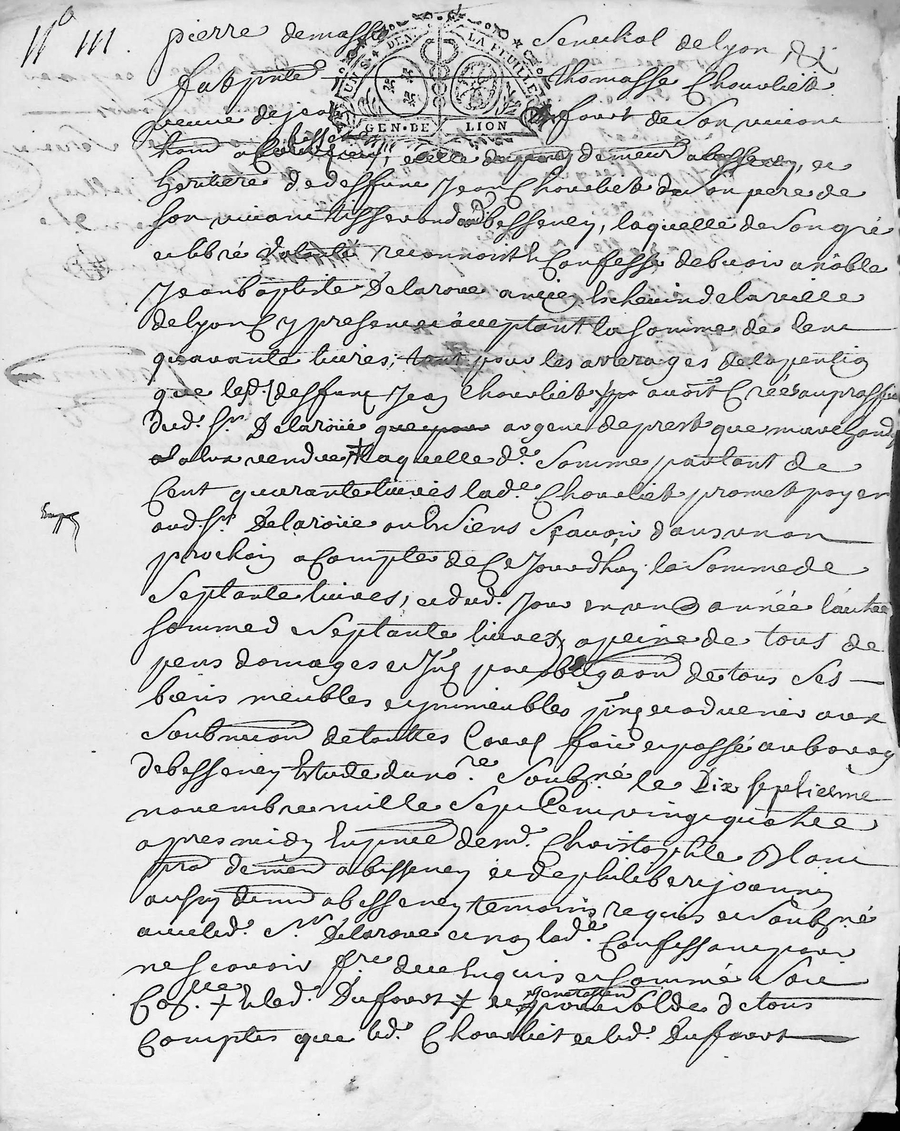 N° 111.
pierre demasso Senechal delyon &c
fut pnte thomasse Chouvliet
veufve de jean Duffourt de Son vivant
demeur a bessenay, et
heritiere de deffunt Jean Chouvliet Son pere de
Son vivant tisserand de bessenay, laquelle de Son gré
et libre volonté reconnoit et Confesse debvoir a noble
Jean baptiste Delaroue ancien Eschevin de la ville
de lyon Cy present et acceptant la Somme de Cent
quarante livres, pour les arrerages de la pention
que led. deffunt Jean Chouvliet avoit Créé au proffit
dud. Sr. Delaroüe argent de prest que
vendue + laquelle de. Somme partant de
Cent quarante livres lade. Chouvliet promet payer
aud Sr. Delaroüe ou Es Siens Scavoir dans un an
prochain a Compter de Ce Jourdhuy la Somme de
Septante livres, et dud. Jour en une année lautre
Somme de Septante livres, a peine de tous de
pens domages et Int. par obligaon de tous Ses
biens meubles et immeubles pnt et advenir avec
Soubmission de touttes Cours fait et passé au bourg
de bessenay Estude du no.re Soubsné le Dix septieme
novembre mille Sept Cent vingt quatre
apres midy En pnce de me. Christophle Blanc
demt a bessenay et de philibert joannin
aussy demt a bessenay temoins requis et Soubsné
avec led. Sr. Delaroue et non lade. Confessante pour
ne Scavoir Sre. de ce Enquise et Sommée
+ et led. Duffourt + et pour solde generallen de tous
Comptes que led. Chouvliet et led. Duffourt
GEN·DE LION